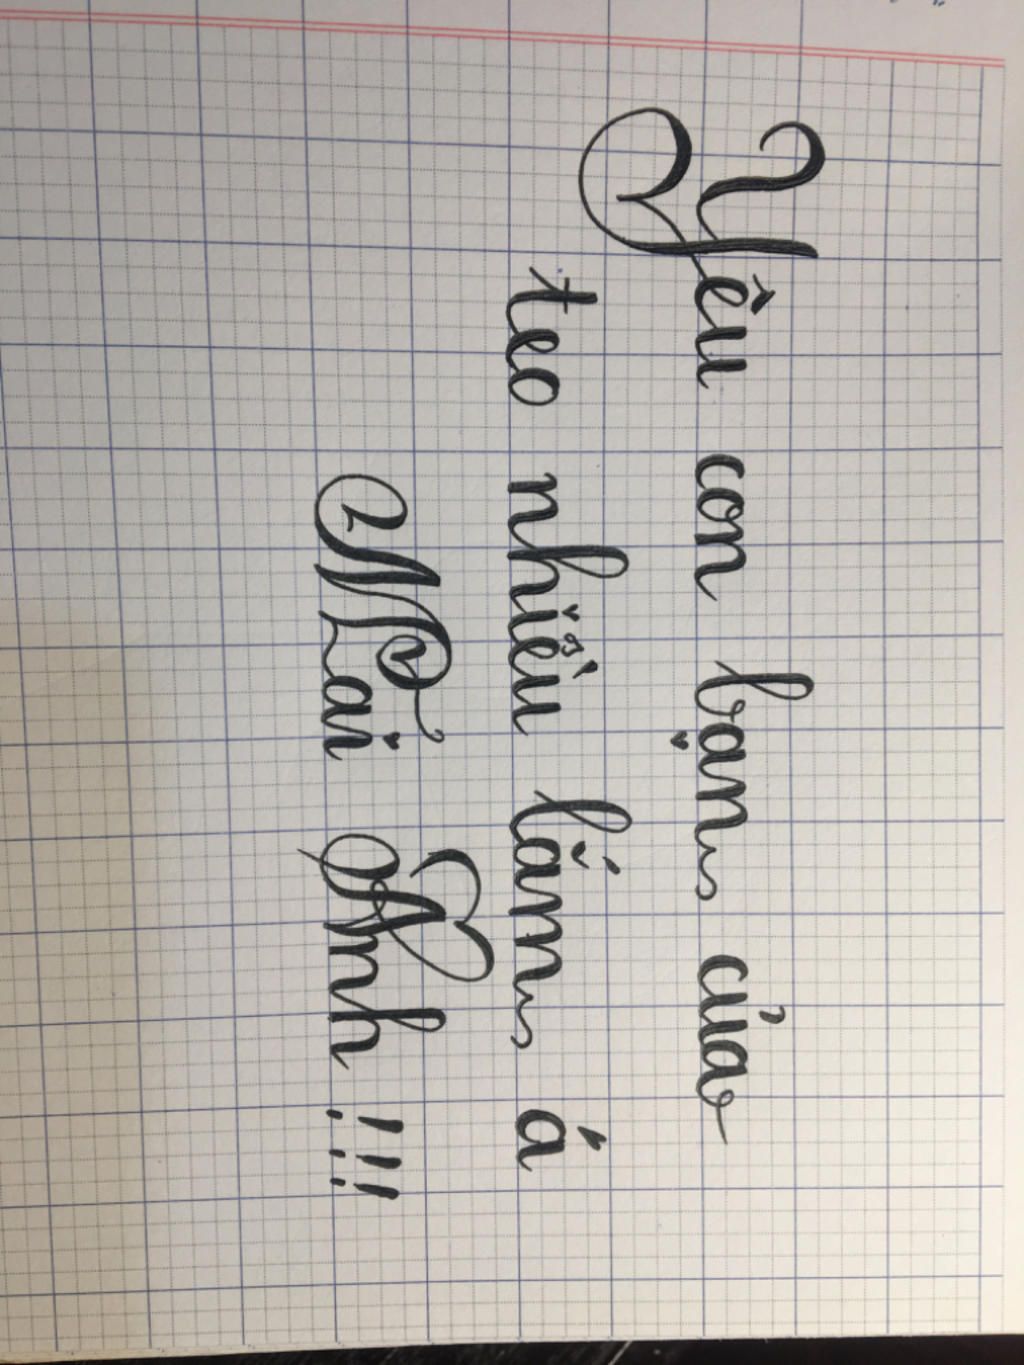 Yêu con bạn của
teo nhiều lắm á
Mai Anh !!!